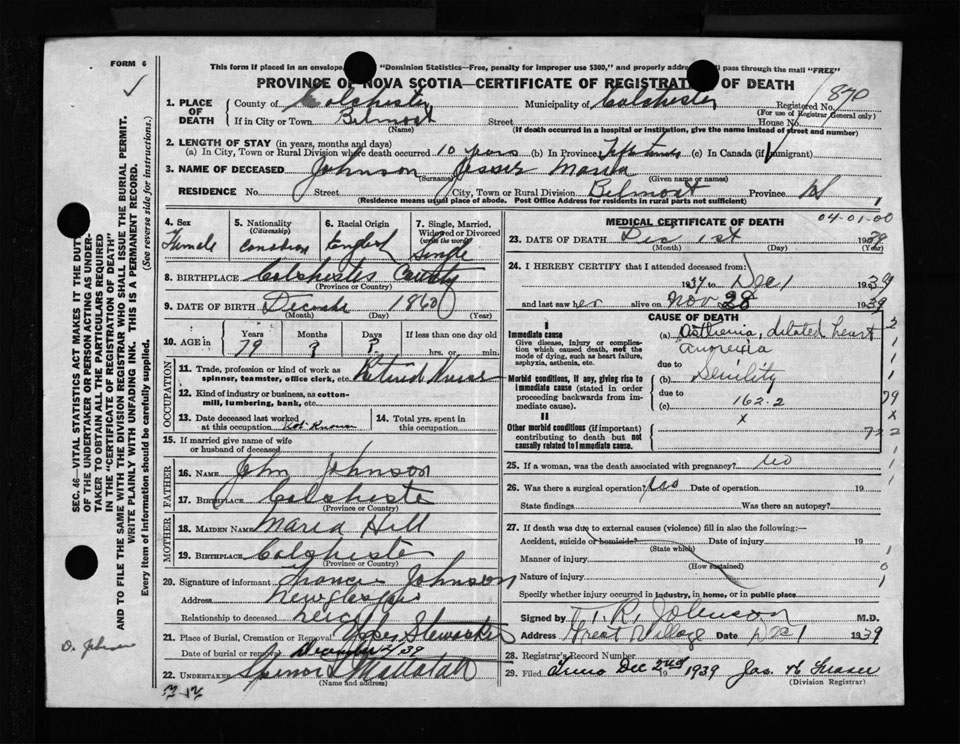 FORM 6
This form if placed in an envelope, "Dominion Statistics—Free, penalty for improper use $300," and properly addres will pass through the mail "FREE"
PROVINCE OF NOVA SCOTIA—CERTIFICATE OF REGISTRATION OF DEATH
870
1. PLACE OF DEATH
County of Colchester Municipality of Colchester Registered No.
(For use of Registrar General only)
If in City or Town Belmont Street House No.
(Name) (If death occurred in a hospital or institution, give the name instead of street and number)
2. LENGTH OF STAY (in years, months and days)
(a) In City, Town or Rural Division where death occurred 10 years (b) In Province (c) In Canada (if immigrant)
3. NAME OF DECEASED Johnson Jessie Maria
(Surname) (Given name or names)
RESIDENCE No. Street City, Town or Rural Division Belmont Province NS
(Residence means usual place of abode. Post Office Address for residents in rural parts not sufficient)
4. Sex Female
5. Nationality (Citizenship) Canadian
6. Racial Origin English
7. Single, Married, Widowed or Divorced (write the word) Single
8. BIRTHPLACE Colchester County
(Province or Country)
9. DATE OF BIRTH December 1860
(Month) (Day) (Year)
10. AGE in Years Months Days If less than one day old
79 ? ? hrs. or min.
OCCUPATION
11. Trade, profession or kind of work as spinner, teamster, office clerk, etc. Retired Nurse
12. Kind of industry or business, as cotton-mill, lumbering, bank, etc.
13. Date deceased last worked at this occupation Not Known
14. Total yrs. spent in this occupation
15. If married give name of wife or husband of deceased
FATHER
16. NAME John Johnson
17. BIRTHPLACE Colcheste
(Province or Country)
MOTHER
18. MAIDEN NAME Maria Hill
19. BIRTHPLACE Colcheste
(Province or Country)
20. Signature of informant Johnson
Address New Glasgow
Relationship to deceased
21. Place of Burial, Cremation or Removal Upper Stewiacke
Date of burial or removal December 39
22. UNDERTAKER
(Name and address)
MEDICAL CERTIFICATE OF DEATH
04-01-00
23. DATE OF DEATH Dec 1st 1939
(Month) (Day) (Year)
24. I HEREBY CERTIFY that I attended deceased from
1937 to Dec 1 1939
and last saw her alive on Nov 28 1939
CAUSE OF DEATH
Immediate cause
Give disease, injury or complication which caused death, not the mode of dying, such as heart failure, asphyxia, asthenia, etc.
(a) Asthenia, dilated heart
anorexia
due to
Morbid conditions, if any, giving rise to immediate cause (stated in order proceeding backwards from immediate cause).
(b) Senility
due to
(c) 162.2
x
Other morbid conditions (if important) contributing to death but not causally related to immediate cause.
25. If a woman, was the death associated with pregnancy? no
26. Was there a surgical operation? no Date of operation 19
State findings Was there an autopsy?
27. If death was due to external causes (violence) fill in also the following:—
Accident, suicide or homicide? Date of injury 19
(State which)
Manner of injury
(How sustained)
Nature of injury
Specify whether injury occurred in industry, in home, or in public place
Signed by T. R. Johnson M.D.
Address Great Village Date Dec 1 1939
28. Registrar's Record Number
29. Filed Truro Dec 2nd 1939 Jas. H Fraser
19 (Division Registrar)
SEC. 46—VITAL STATISTICS ACT MAKES IT THE DUTY
OF THE UNDERTAKER OR PERSON ACTING AS UNDERTAKER TO OBTAIN ALL THE PARTICULARS REQUIRED
IN THE "CERTIFICATE OF REGISTRATION OF DEATH"
AND TO FILE THE SAME WITH THE DIVISION REGISTRAR WHO SHALL ISSUE THE BURIAL PERMIT.
WRITE PLAINLY WITH UNFADING INK. THIS IS A PERMANENT RECORD.
Every item of information should be carefully supplied. (See reverse side for instructions.)
D. Johnson